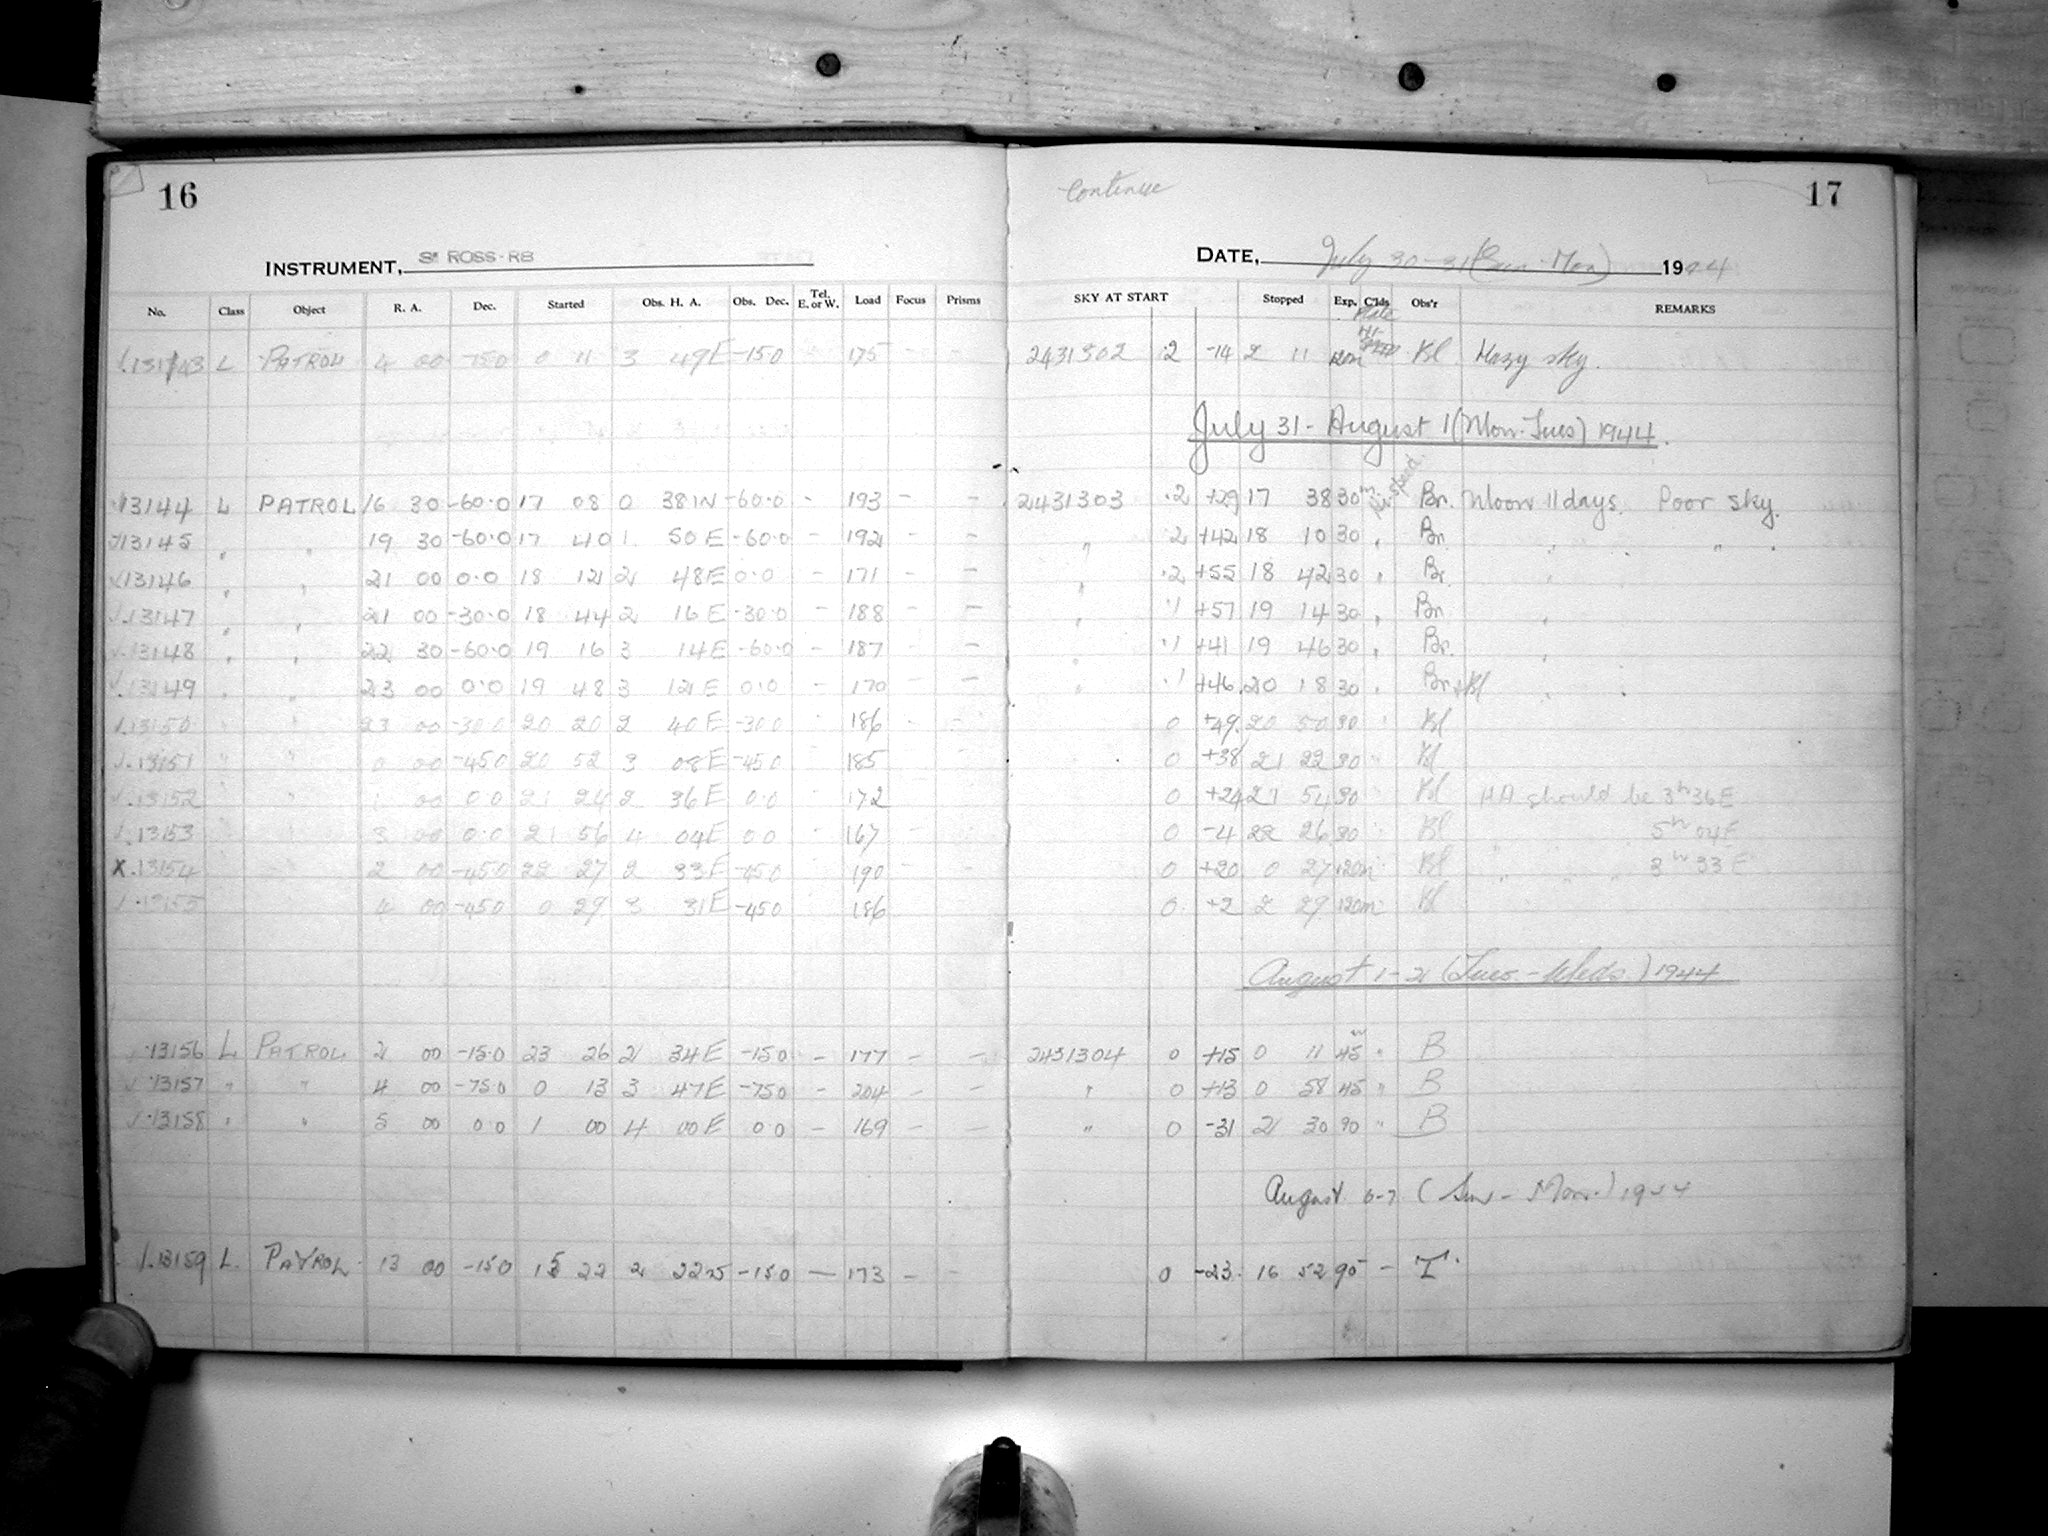 16
INSTRUMENT, ROSS-RB
No. Class Object R. A. Dec. Started Obs. H. A. Obs. Dec. Tel. E. or W. Load Focus Prisms
L PATROL 4 00 0 11 3 49E 175
13144 L PATROL 16 30 -60.0 17 08 0 38W -60.0 - 193 - -
13145 " " 19 30 -60.0 17 40 1 50E -60.0 - 192 - -
13146 " " 21 00 0.0 18 12 2 48E 0.0 - 171 - -
13147 " " 21 00 -30.0 18 44 2 16E -30.0 - 188 - -
13148 " " 22 30 -60.0 19 16 3 14E -60.0 - 187 - -
13149 " " 23 00 0.0 19 48 3 12E 0.0 - 170 - -
13150 " " 23 00 -30 0 20 20 2 40E -30 0 186
13151 " " 0 00 -45 0 20 52 3 08E -45 0 185
13152 " " 1 00 0.0 21 24 2 36E 0.0 172
13153 3 00 0.0 21 56 4 04E 0 0 167
X 13154 2 00 -45 0 22 27 2 33E -45 0 190
13155 4 00 -45 0 0 29 3 31E -45 0 186
13156 L PATROL 2 00 -15.0 23 26 2 34E -15 0 - 177 - -
13157 " " 4 00 -75 0 0 13 3 47E -75 0 - 204 - -
13158 " " 5 00 0 0 1 00 4 00E 0 0 - 169 - -
13159 L. PATROL 13 00 -15 0 22 2 -15 0 - 173 - -
Continue
17
DATE, July 30-31 (Sun-Mon) 1944
SKY AT START Stopped Exp. C'lds Obs'r REMARKS
Plate
2431302 .2 -14 2 11 120m Bl Hazy sky.
July 31 - August 1 (Mon-Tues) 1944.
2431303 .2 +29 17 38 30m Br. Moon 11 days. Poor sky.
" .2 +42 18 10 30 " Br. " "
" .2 +55 18 42 30 " Br. "
" .1 +57 19 14 30 " Br. "
" .1 +41 19 46 30 " Br. "
" .1 +46 20 18 30 " Br + Bl "
0 +49 20 50 30 " Bl
0 +38 21 22 30 " Bl
0 +24 21 54 30 Bl HA should be 3h 36E
0 -4 22 26 30 Bl " 5h 04E
0 +20 0 27 120m Bl " " " 3h 33E
0 +2 2 29 120m Bl
August 1-2 (Tues.-Weds.) 1944
2431304 0 +15 0 11 45m " B
" 0 +13 0 58 45 " B
" 0 -31 2 30 90 " B
August 6-7 (Sun-Mon.) 1944
0 -23 16 52 90 - T.